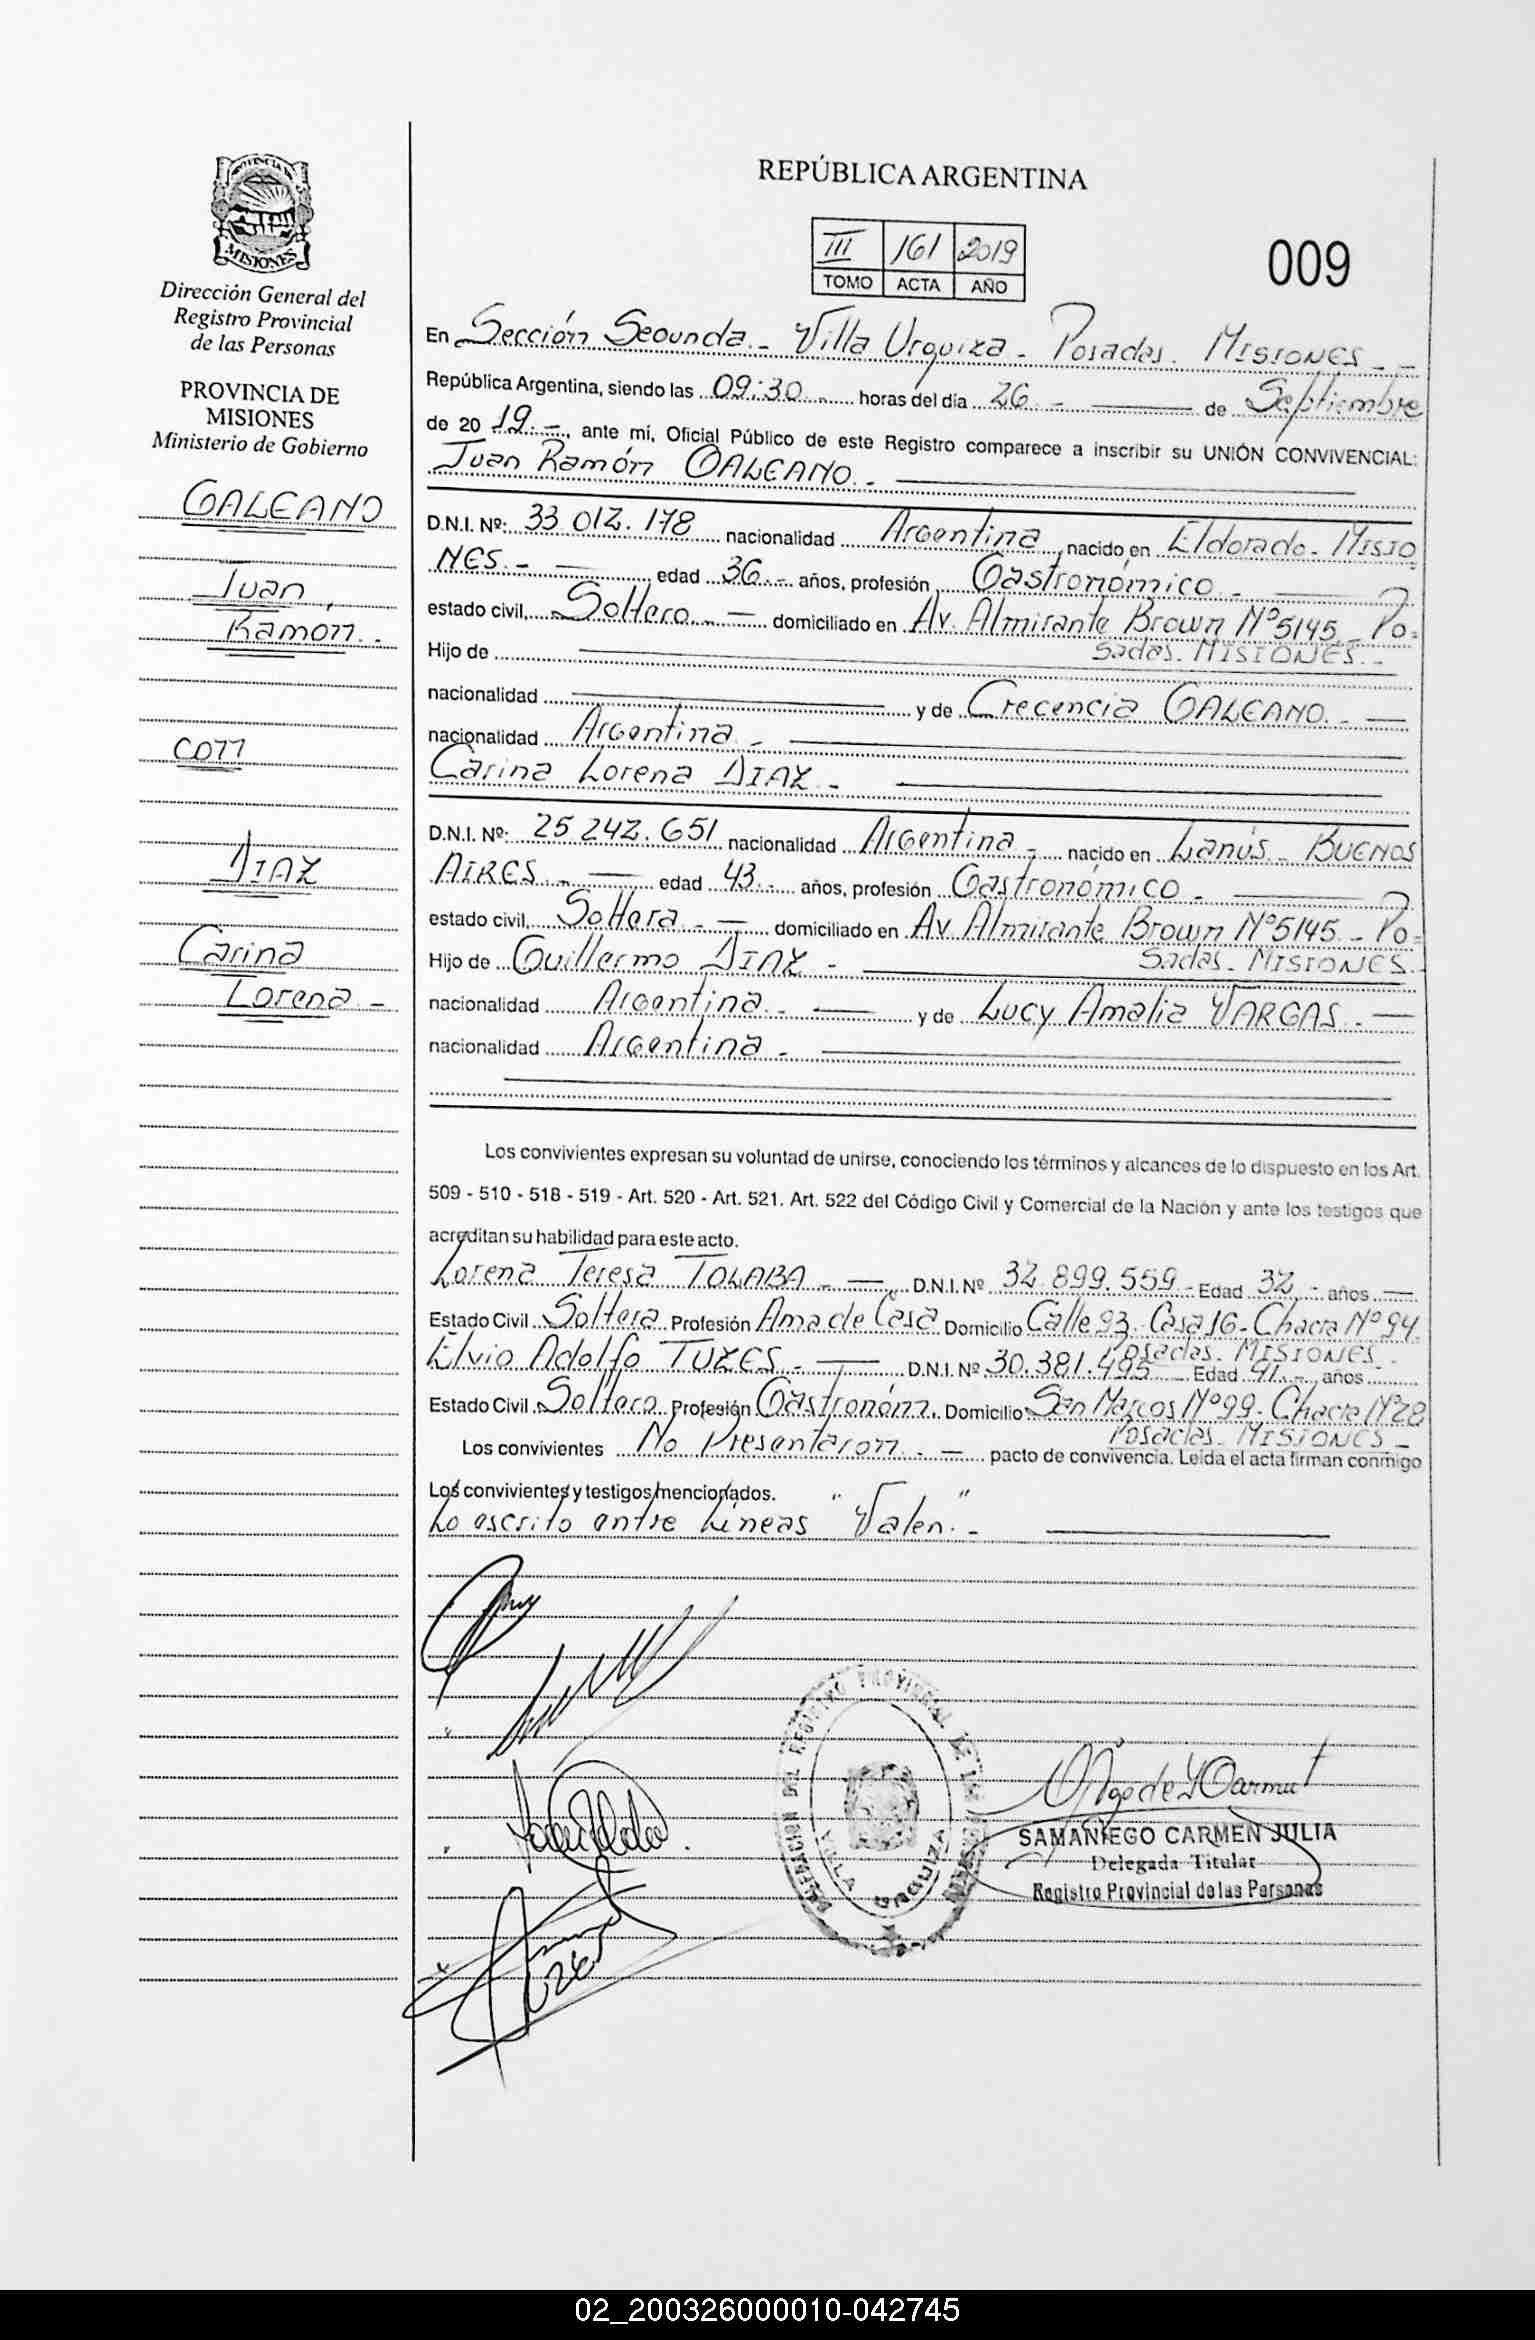 REPÚBLICA ARGENTINA
III 161 2019
TOMO ACTA AÑO
009
PROVINCIA DE
MISIONES
Dirección General del
Registro Provincial
de las Personas
PROVINCIA DE
MISIONES
Ministerio de Gobierno
GALEANO
Juan
Ramón.-
con
DIAZ
Carina
Lorena.-
En Sección Segunda.- Villa Urquiza - Posadas. MISIONES.- -
República Argentina, siendo las 09:30. horas del día 26.- — de Septiembre
de 20 19.-, ante mí, Oficial Público de este Registro comparece a inscribir su UNIÓN CONVIVENCIAL:
Juan Ramón GALEANO.-
D.N.I. Nº: 33.012.178 nacionalidad Argentina, nacido en Eldorado- MISIO
NES.- — edad 36.- años, profesión Gastronómico.-
estado civil, Soltero.- — domiciliado en Av. Almirante Brown Nº 5145 - Po=
sadas- MISIONES.-
Hijo de
nacionalidad y de Crecencia GALEANO.- —
nacionalidad Argentina.-
Carina Lorena DIAZ.-
D.N.I. Nº: 25.242.651 nacionalidad Argentina.- nacido en Lanús- BUENOS
AIRES.- — edad 43.- años, profesión Gastronómico.-
estado civil, Soltera.- — domiciliado en Av. Almirante Brown Nº 5145.- Po=
sadas- MISIONES.
Hijo de Guillermo DIAZ.-
nacionalidad Argentina.- — y de Lucy Amalia VARGAS.- —
nacionalidad Argentina.-
Los convivientes expresan su voluntad de unirse, conociendo los términos y alcances de lo dispuesto en los Art.
509 - 510 - 518 - 519 - Art. 520 - Art. 521. Art. 522 del Código Civil y Comercial de la Nación y ante los testigos que
acreditan su habilidad para este acto.
Lorena Teresa TOLABA.- — D.N.I. Nº 32.899.559.- Edad 32.- años —
Estado Civil Soltera Profesión Ama de Casa Domicilio Calle 93. Casa 16- Chacra Nº 94.
Posadas- MISIONES.-
Elvio Adolfo TUZES.- — D.N.I. Nº 30.381.495 Edad 41.- años
Estado Civil Soltero Profesión Gastronóm. Domicilio San Marcos Nº 99- Chacra Nº 28
Posadas- MISIONES-
Los convivientes No Presentaron.- — pacto de convivencia. Leída el acta firman conmigo
Los convivientes y testigos mencionados.
Lo escrito entre Líneas "Valen".-
DELEGACION DEL REGISTRO PROVINCIAL DE LAS PERSONAS
VILLA URQUIZA
SAMANIEGO CARMEN JULIA
Delegada Titular
Registro Provincial de las Personas
02_200326000010-042745